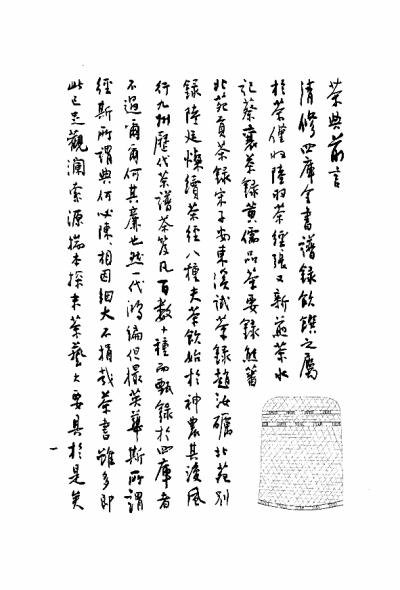 茶典前言
清修四库全書譜錄飲饌之屬
於茶僅收陸羽茶經張又新煎茶水
記蔡襄茶錄黄儒品茶要錄熊蕃
北苑貢茶錄宋子安東溪試茶錄趙汝礪北苑別
錄陸廷燦續茶經八種夫茶飲始於神農其後風
行九州歷代茶譜茶笈凡百數十種而甄錄於四庫者
不過爾爾何其廉也然一代鴻編但撮英華斯所謂
經斯所謂典何必陳陳相因細大不捐哉茶書雖多即
此已足觀瀾索源揣本探末茶藝之要具於是矣
一